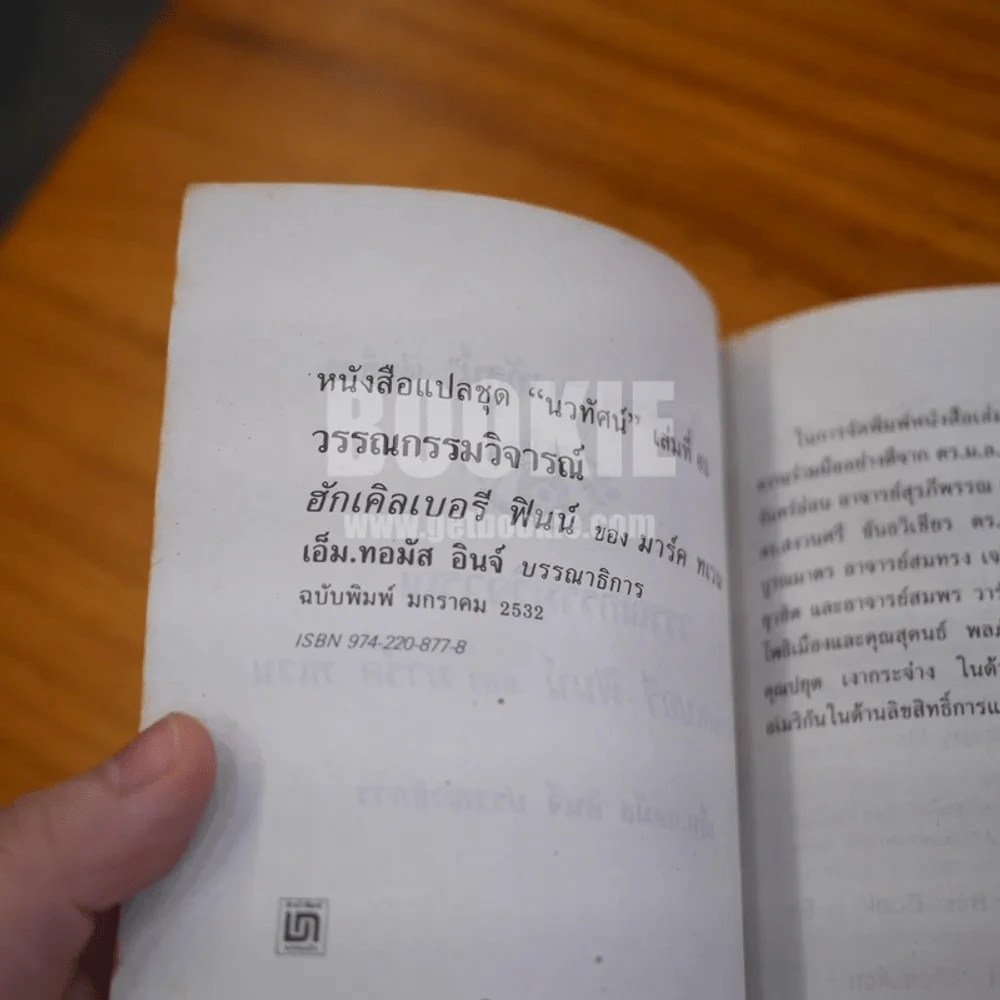 หนังสือแปลชุด “นวทัศน์” เล่มที่
วรรณกรรมวิจารณ์
ฮักเคิลเบอรี ฟินน์ ของ มาร์ค ทเวน
เอ็ม.ทอมัส อินจ์ บรรณาธิการ
ฉบับพิมพ์ มกราคม 2532
ISBN 974-220-877-8
BOOKIE
www.getbookie.com
ในการจัดพิมพ์หนังสือเล่ม
ความร่วมมืออย่างดีจาก ดร.ม.ล.
อาจารย์สุรภีพรรณ
ดร.
อาจารย์สมทรง เจ
และอาจารย์สมพร วาร์
โพธิ์เมืองและคุณสุคนธ์ พลภ
คุณปยุต เงากระจ่าง ในด้
อเมริกันในด้านลิขสิทธิ์การแ